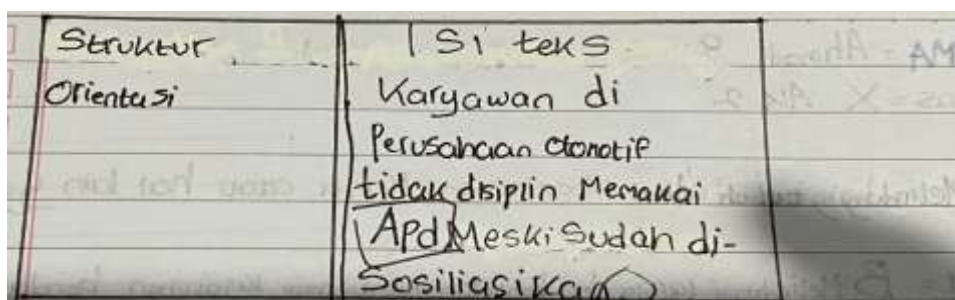 Struktur
Isi teks
Orientasi
Karyawan di
Perusahaan otomotif
tidak disiplin Memakai
Apd Meski Sudah di-
Sosiliasikan